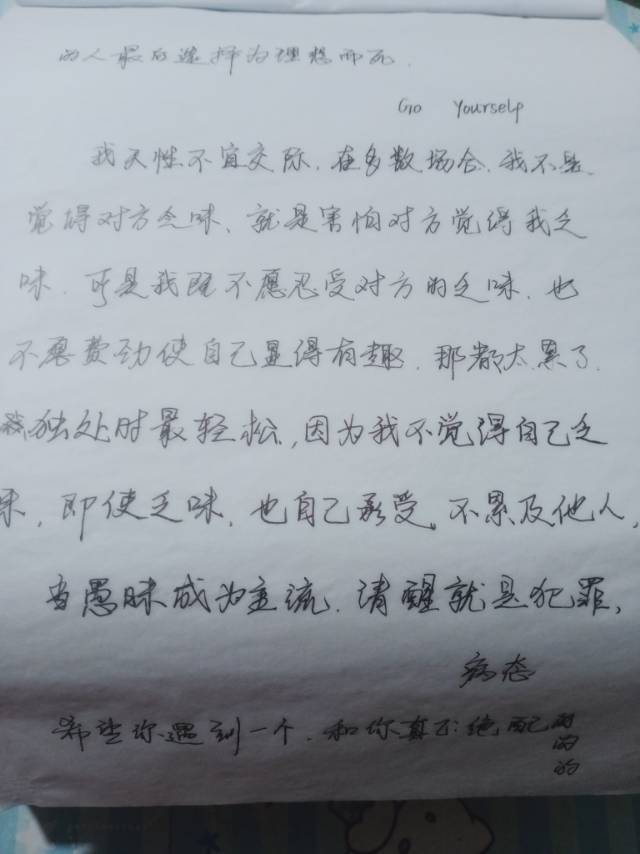 的人最后选择为理想而死.
Go Yourself
我天性不宜交际.在多数场合.我不是
觉得对方乏味、就是害怕对方觉得我乏
味.可是我既不愿忍受对方的乏味.也
不愿费劲使自己显得有趣.那都太累了.
我独处时最轻松,因为我不觉得自己乏
味,即使乏味,也自己承受,不累及他人,
当愚昧成为主流.清醒就是犯罪,
病态
希望你遇到一个.和你真正绝配
的
的